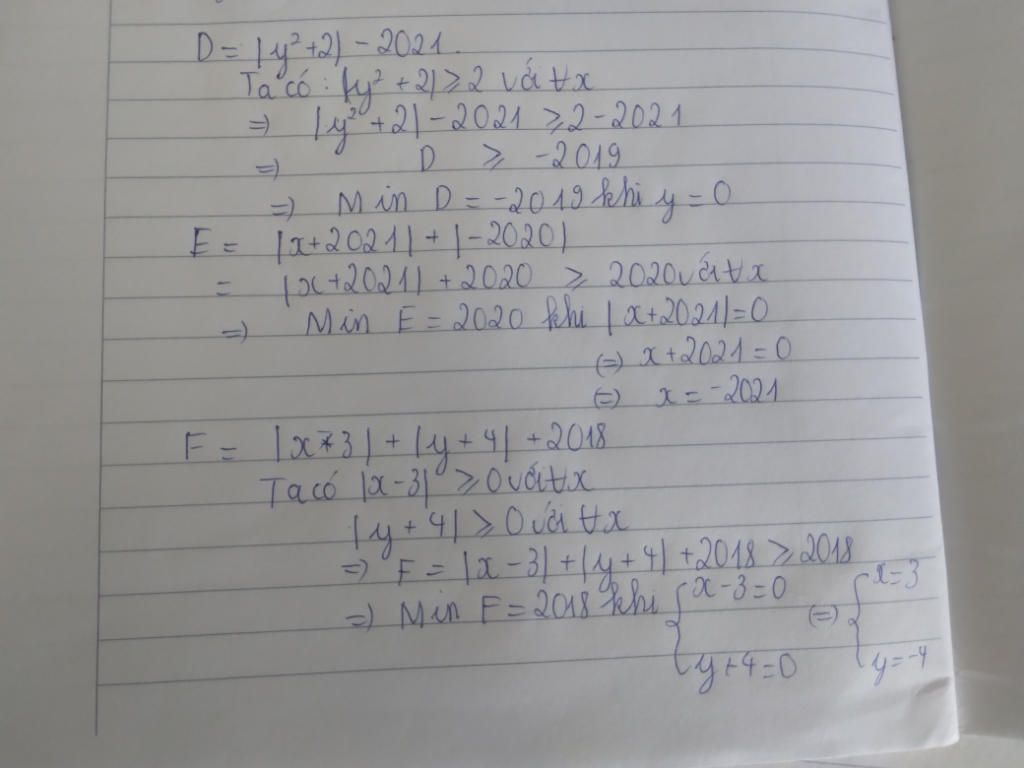 D = |y² + 2| - 2021.
Ta có : |y² + 2| ≥ 2 với ∀x
=> |y² + 2| - 2021 ≥ 2 - 2021
=> D ≥ -2019
=> Min D = -2019 khi y = 0
E = |x+2021| + |-2020|
= |x+2021| + 2020 ≥ 2020 với ∀x
=> Min E = 2020 khi |x+2021| = 0
(=) x + 2021 = 0
(=) x = -2021
F = |x-3| + |y+4| + 2018
Ta có |x-3| ≥ 0 với ∀x
|y+4| ≥ 0 với ∀x
=> F = |x-3| + |y+4| + 2018 ≥ 2018
=> Min F = 2018 khi { x-3=0 (=) { x=3
y+4=0 y=-4